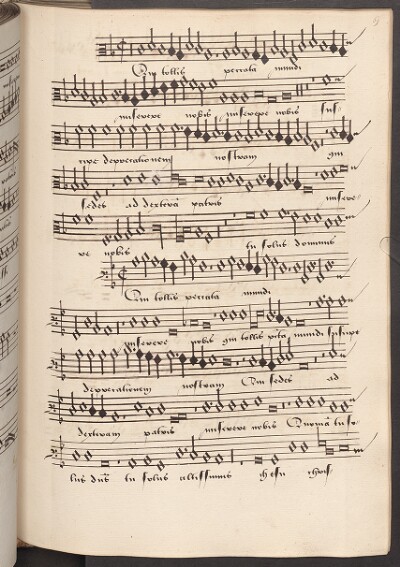 Qui tollis peccata mundi
miserere nobis miserere nobis sus-
cipe deprecationem nostram qui
sedes ad dexterā patris misere-
re nobis tu solus dominus
Qui tollis peccata mundi
miserere nobis qui tollis pctā mundi suscipe
deprecationem nostram Qui sedes ad
dexteram patris miserere nobis Quoniā tu so-
lus dn̄s tu solus altissimus Jhesu chris-